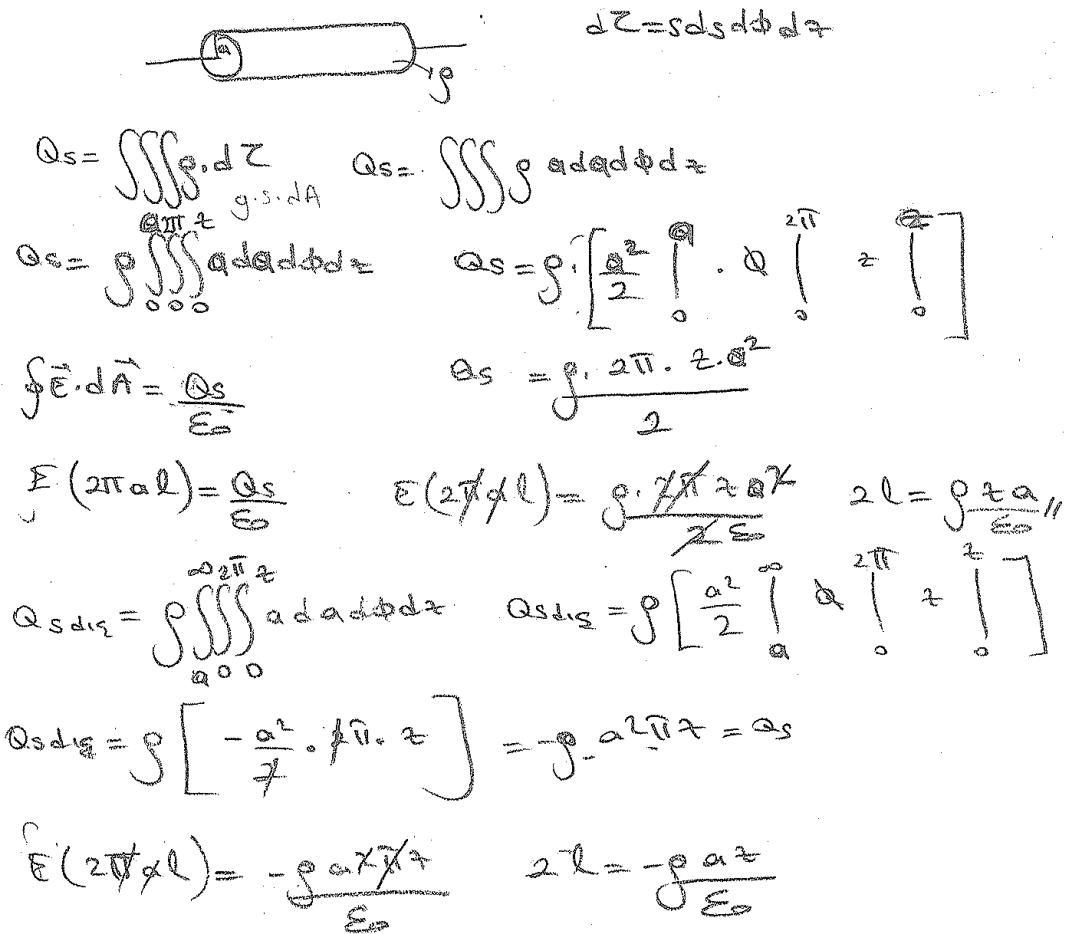 dτ = s ds dϕ dz
a
ρ
Qs = ∭ρ.dτ Qs = ∭ρ a da dϕ dz
g.s.dA
Qs = ρ ∫₀ᵃ∫₀^π∫₀ᶻ a da dϕ dz Qs = ρ.[a²/2 |₀ᵃ . ϕ |₀^2π z |₀ᶻ]
∮E⃗.dA⃗ = Qs/ε₀ Qs = ρ. 2π. z.a²/2
E(2πal) = Qs/ε₀ E(2πal) = ρ.2π z a²/2ε₀ 2l = ρ z a/ε₀ //
Qsdış = ρ ∫ₐ^∞∫₀^2π∫₀ᶻ a da dϕ dz Qsdış = ρ[a²/2 |ₐ^∞ ϕ |₀^2π z |₀ᶻ]
Qsdış = ρ[-a²/2 . 2π. z] = -ρ. a²πz = Qs
E(2πal) = -ρa²πz/ε₀ 2l = -ρaz/ε₀